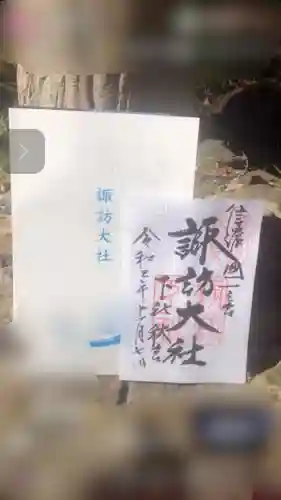 諏訪大社
信濃國一之宮
諏訪大社
下社秋宮
令和五年十一月七日